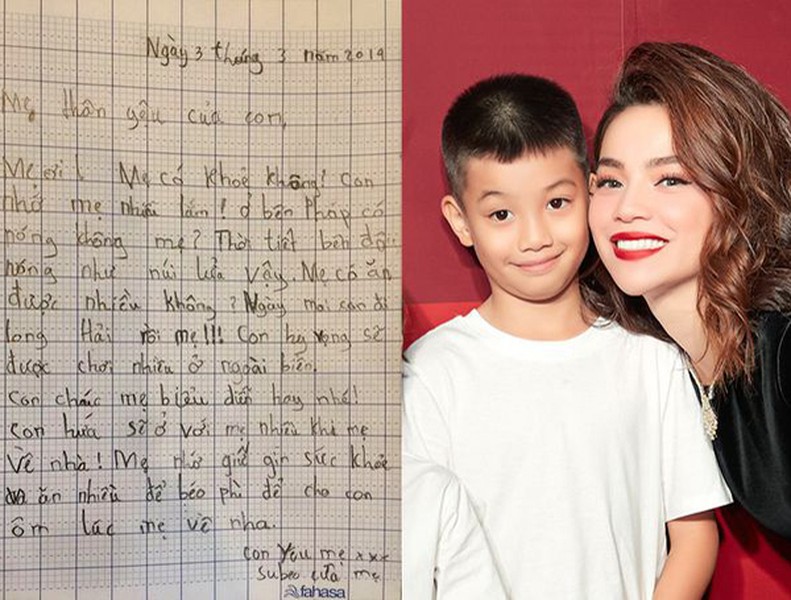 Ngày 3 tháng 3 năm 2019
Mẹ thân yêu của con,
Mẹ ơi! Mẹ có khoẻ không! Con
nhớ mẹ nhiều lắm! Ở bên Pháp có
nóng không mẹ? Thời tiết bên
nóng như núi lửa vậy. Mẹ có ăn
được nhiều không? Ngày mai con đi
long Hải rồi mẹ!!! Con hy vọng sẽ
được chơi nhiều ở ngoài biển.
Con chắc mẹ biểu diễn hay nhé!
Con hứa sẽ ở với mẹ nhiều khi mẹ
Về nhà! Mẹ nhớ giữ gìn sức khoẻ
ăn nhiều để béo phì để cho con
ôm lúc mẹ về nha.
Con Yêu mẹ xxx
Subeo của mẹ
fahasa